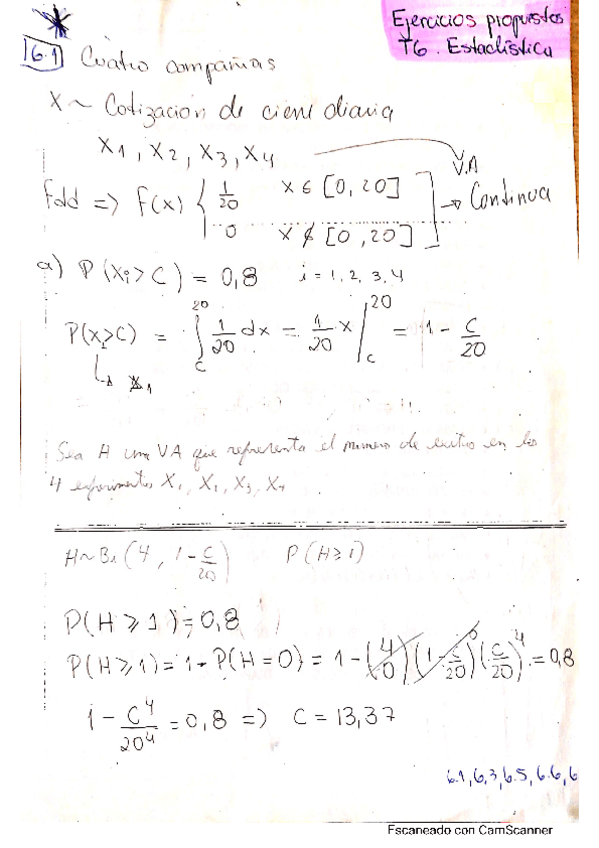 Ejercicios propuestos
T6. Estadística
6.1 Cuatro compañias
X ~ Cotización de cierre diaria
X1, X2, X3, X4
V.A
f(x) { 1/20 x ∈ [0, 20]
0 x ∉ [0, 20] → Continua
a) P(Xi > C) = 0,8 i = 1, 2, 3, 4
P(X > C) = ∫_C^20 1/20 dx = 1/20 x |_C^20 = 1 - C/20
Sea H una VA que representa el número de exitos en los
4 experimentos X1, X1, X3, X4
H ~ Bi(4, 1 - C/20) P(H ≥ 1)
P(H ≥ 1) = 0,8
P(H ≥ 1) = 1 - P(H = 0) = 1 - (4 0)(1 - C/20)^0 (C/20)^4 = 0,8
1 - C^4/20^4 = 0,8 => C = 13,37
6.1, 6,3, 6.5, 6.6, 6
Escaneado con CamScanner